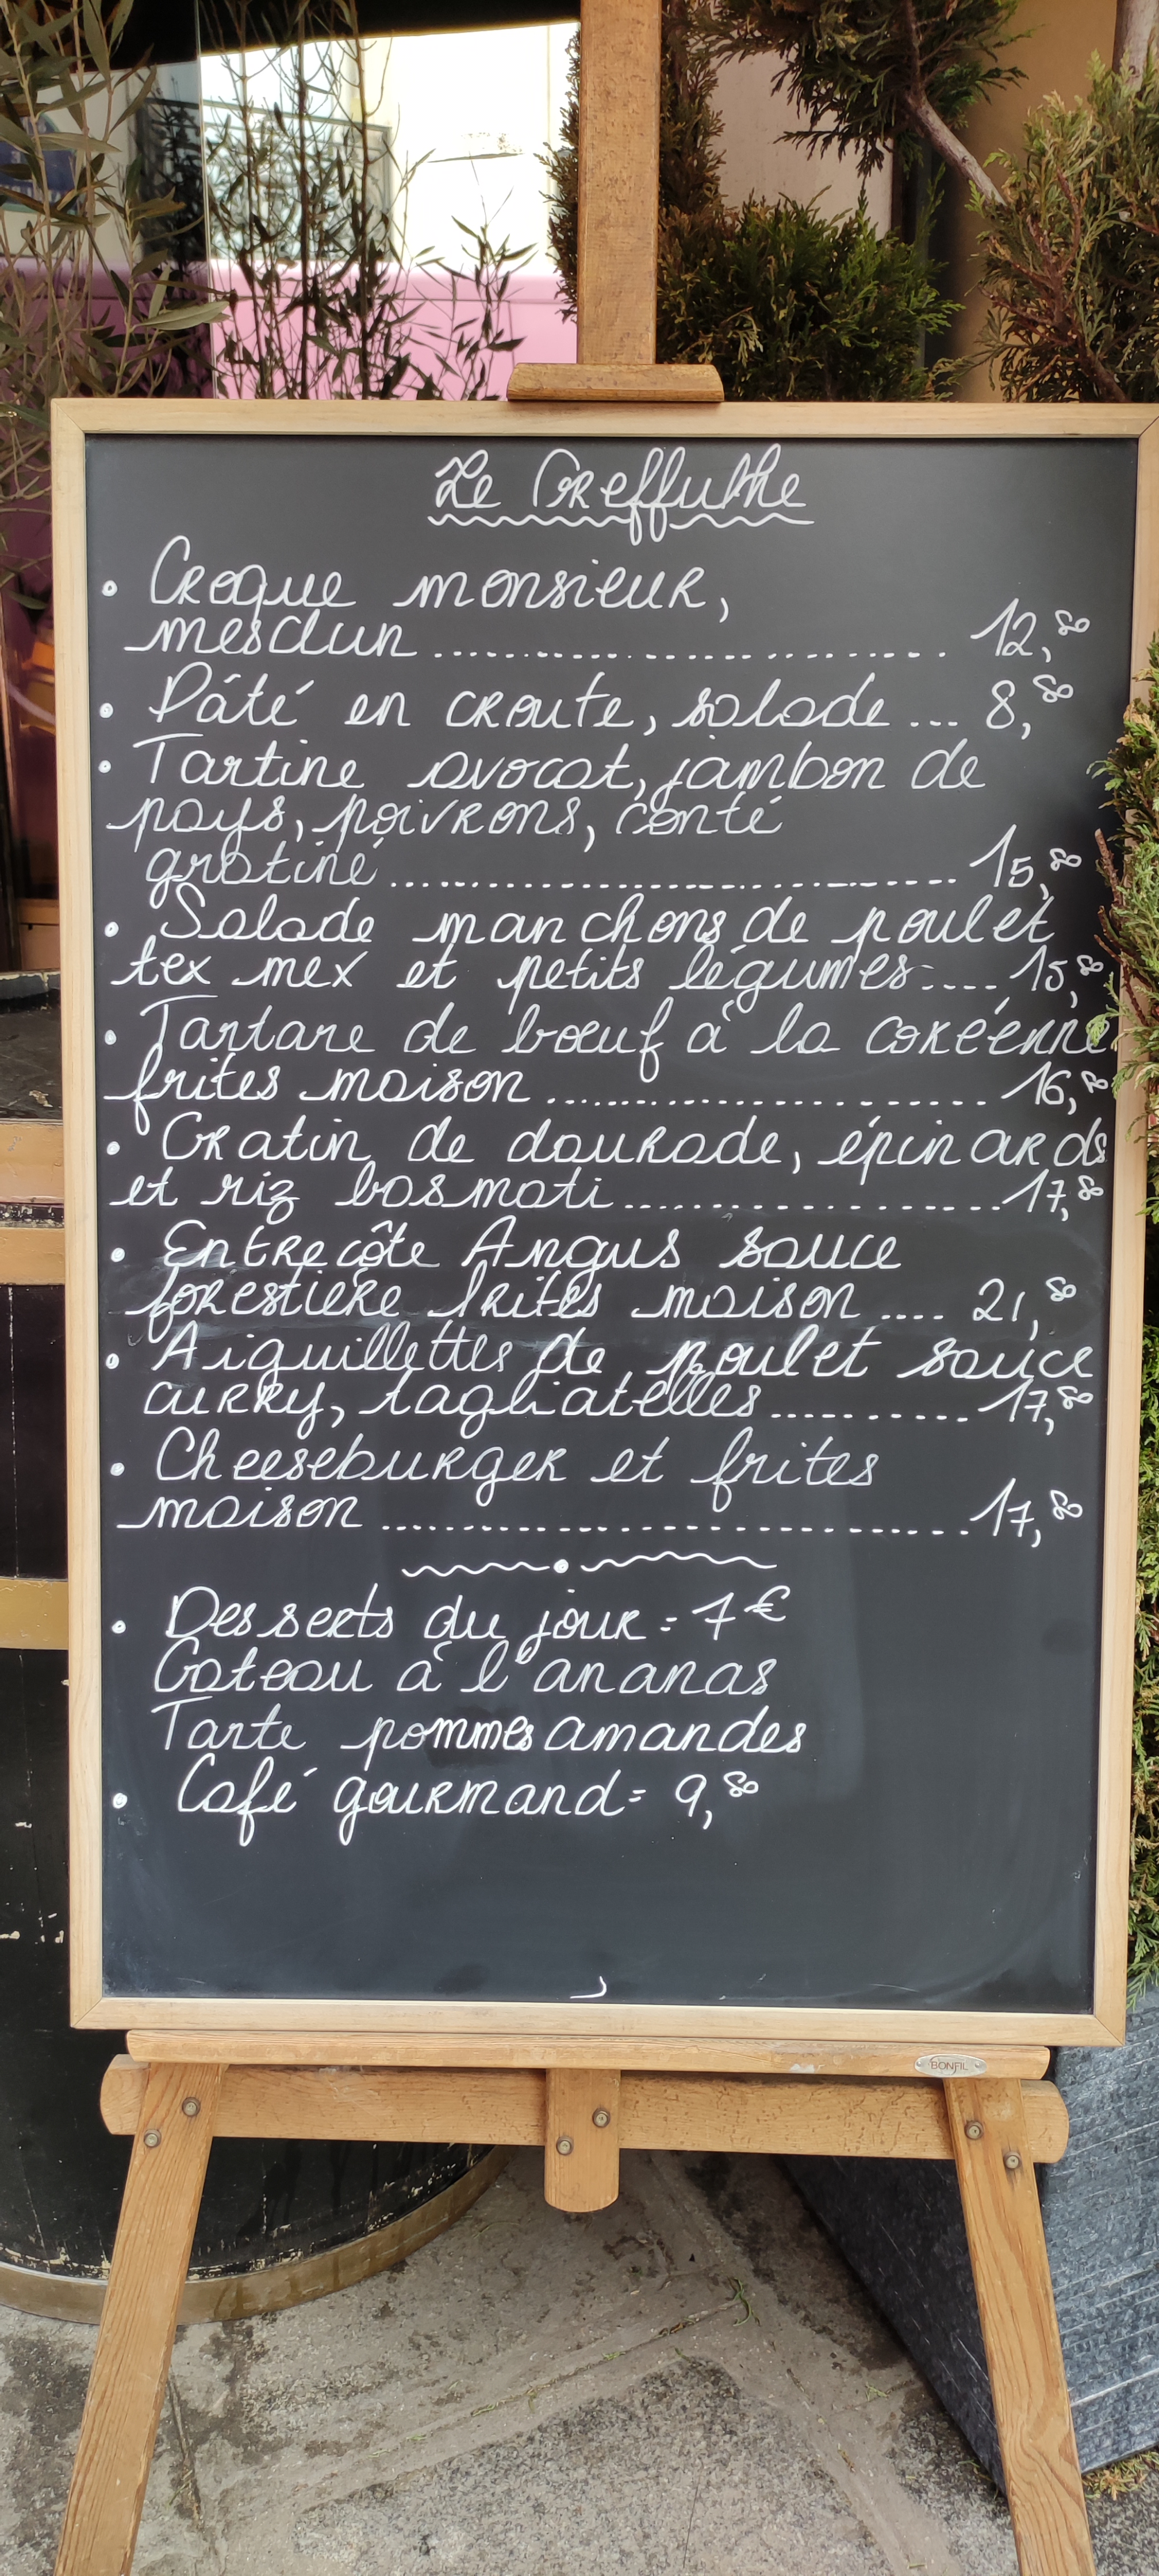 Le Greffulhe
• Croque monsieur,
mesclun .......................... 12,80
• Pâté en croute, salade ... 8,80
• Tartine avocat, jambon de
pays, poivrons, comté
gratiné ............................. 15,80
• Salade manchons de poulet
tex mex et petits légumes .... 15,80
• Tartare de bœuf à la coréenne
frites maison ...................... 16,80
• Gratin de daurade, épinards
et riz basmati ................... 17,80
• Entrecôte Angus sauce
forestière frites maison .... 21,80
• Aiguillettes de poulet sauce
curry, tagliatelles ........... 17,80
• Cheeseburger et frites
maison .............................. 17,80
• Desserts du jour = 7€
Gateau à l'ananas
Tarte pommes amandes
• Café gourmand = 9,80
BONFIL